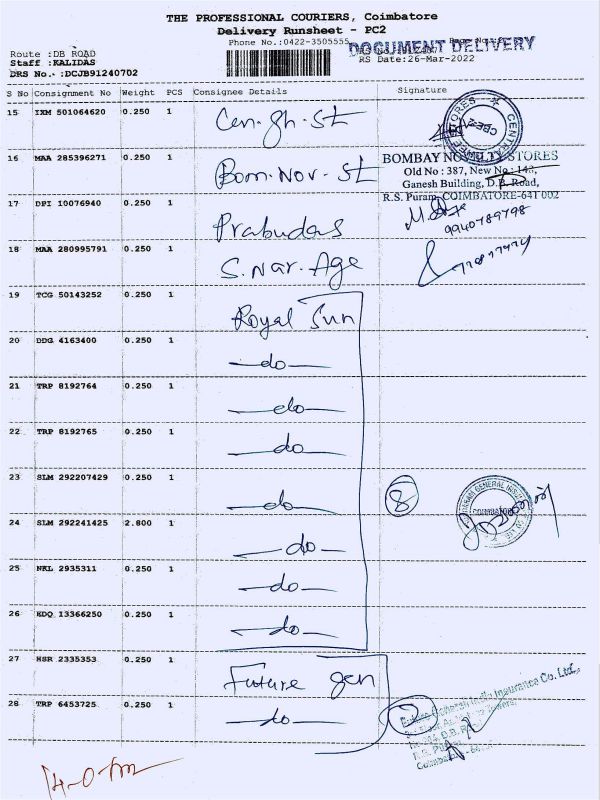 THE PROFESSIONAL COURIERS, Coimbatore
Delivery Runsheet - PC2
Phone No.:0422-3505555
DOCUMENT DELIVERY
Route :DB ROAD
Staff :KALIDAS
RS Date:26-Mar-2022
DRS No. :DCJB91240702
S No Consignment No Weight PCS Consignee Details Signature
15 IXM 501064620 0.250 1 Cen.gh.St
16 MAA 285396271 0.250 1 Bom.Nov.St
BOMBAY NOVELTY STORES
Old No : 387, New No : 143,
Ganesh Building, D.B. Road,
R.S. Puram, COIMBATORE-641 002
17 DPI 10076940 0.250 1 Prabudas
9940789798
18 MAA 280995791 0.250 1 S.Nar.Age
19 TCG 50143252 0.250 1 Royal Sun
20 DDG 4163400 0.250 1 —do—
21 TRP 8192764 0.250 1 —do—
22 TRP 8192765 0.250 1 —do—
23 SLM 292207429 0.250 1 —do— 8
24 SLM 292241425 2.800 1 —do—
COIMBATORE
25 NKL 2935311 0.250 1 —do—
26 HDQ 13366250 0.250 1 —do—
27 HSR 2335353 0.250 1 Future gen
28 TRP 6453725 0.250 1 —do— 2
Future Generali India Insurance Co. Ltd.,